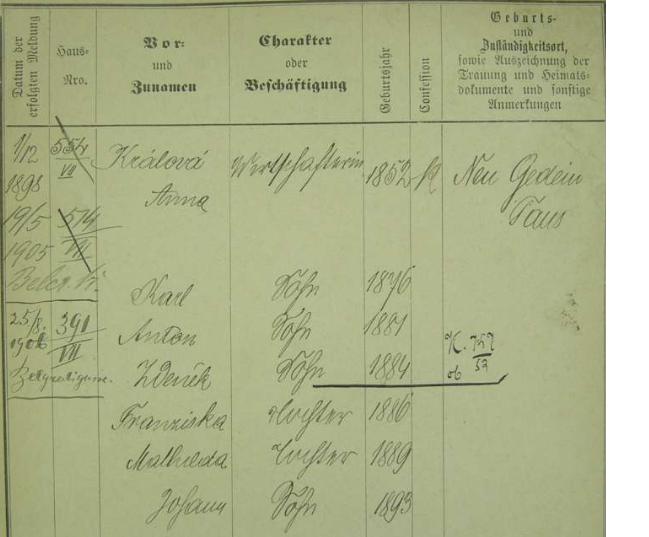 Datum der
erfolgten Meldung
Haus-
Nro.
Vor-
und
Zunamen
Charakter
oder
Beschäftigung
Geburtsjahr
Confession
Geburts-
und
Zuständigkeitsort,
sowie Auszeichnung der
Trauung und Heimats-
dokumente und sonstige
Anmerkungen
1/12 554 Králová Wirtschafterin 1852 k Neu Gedein
1898 VII Anna Taus
19/5 514
1905 VII
Karl Sohn 1876
25/8. 391 Anton Sohn 1881
1906 VII Zdeněk Sohn 1884
Franziska Tochter 1886
Mathilda Tochter 1889
Johann Sohn 1893